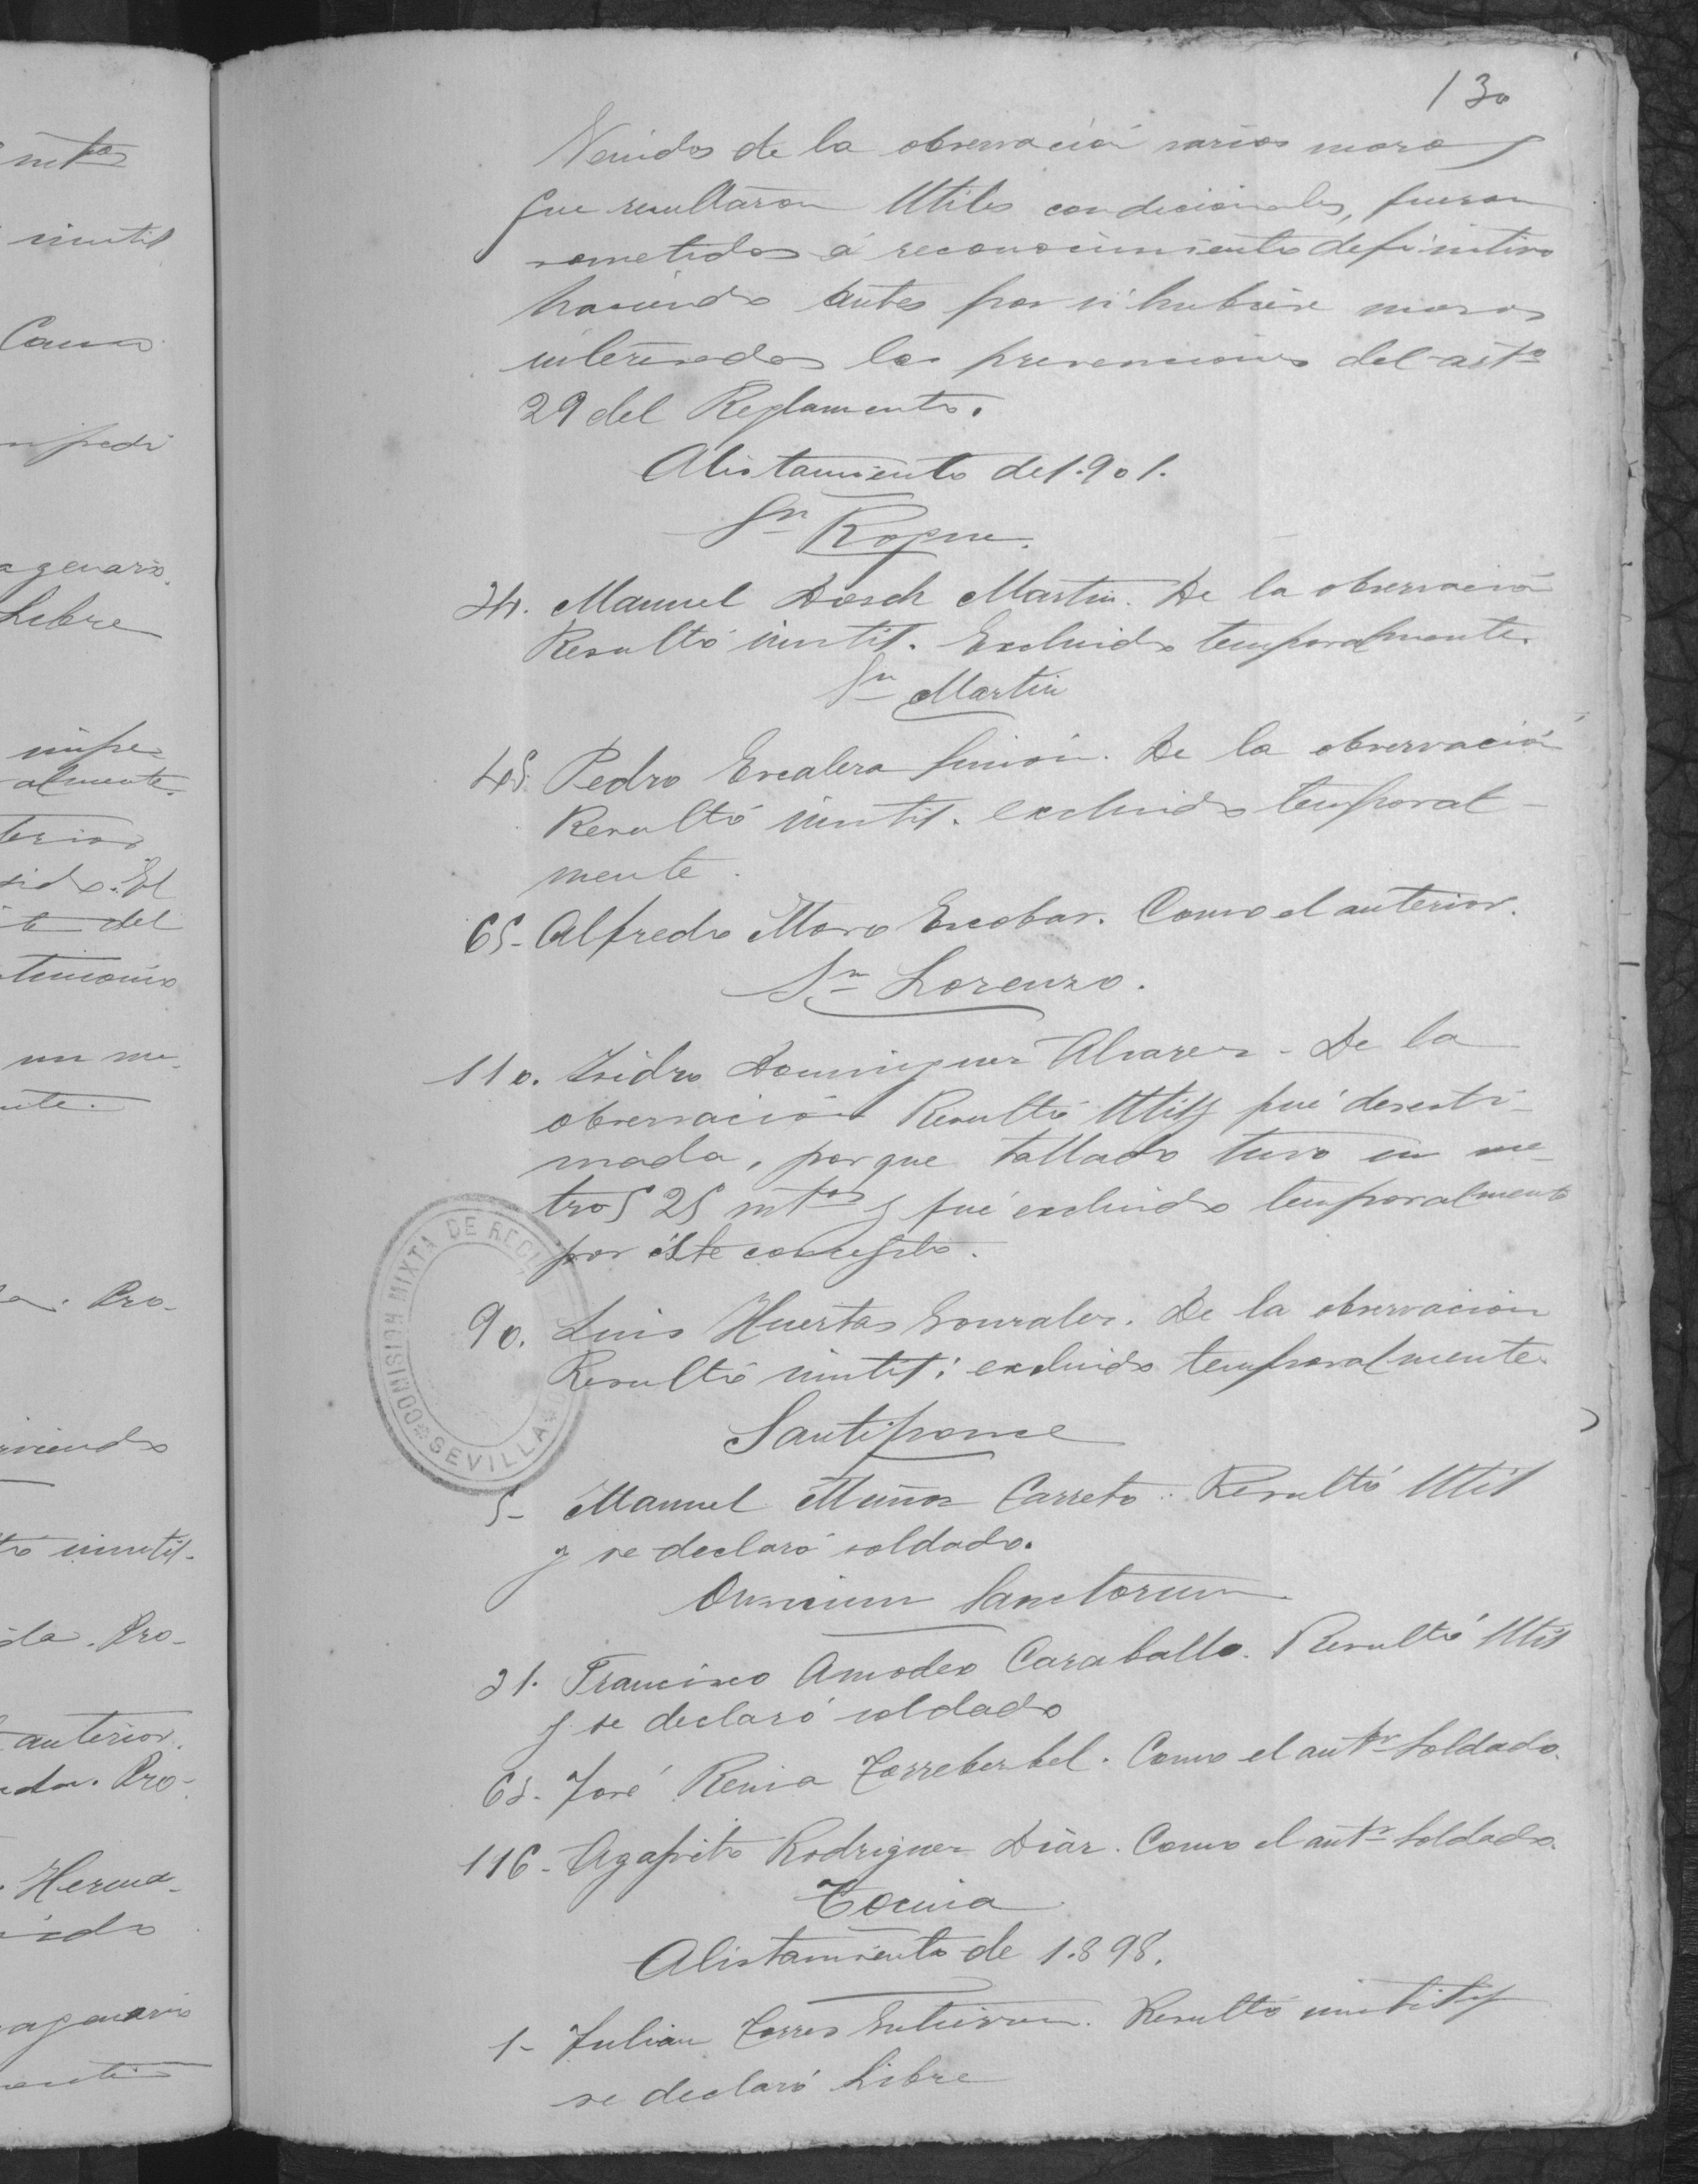 130
Venidos de la observación varios mozos
que resultaron Utiles condicionales, fueron
sometidos á reconocimiento definitivo
haciendo antes por si hubiese mozos
interesados las prevenciones del artº
29 del Reglamento.
Alistamiento de 1.901.
Sn Roque.
24. Manuel Dosch Martin. De la observación
Resultó inutil. Excluido temporalmente.
Sn Martin
45. Pedro Escalera Simón. De la observación
Resultó inutil. excluido temporal-
mente.
65- Alfredo Moro Escobar. Como el anterior.
Sn Lorenzo.
110. Isidro Dominguez Alvarez - De la
observación Resultó Util y fué desesti-
mada, porque tallado tuvo un me-
tro 525 mtos y fué excluido temporalmente
por éste concepto.
90. Luis Huertas Gonzalez. De la observación
Resultó inutil; excluido temporalmente.
Santiponce
5- Manuel Muñoz Carreto. Resultó Util
y se declaró soldado.
Omnium Sanctorum
21. Francisco Amodeo Caraballo. Resultó Util
y se declaró soldado
62. José Reina . Como el antr Soldado.
116- Agapito Rodriguez Diaz. Como el antr Soldado.
Tocina
Alistamiento de 1.898.
1- Julian Torres Gutierrez. Resultó inutil y
se declaró Libre
COMISION MIXTA DE RECL
SEVILLA
mtos
inutil
agenario.
Libre
almente.
terior
sido. El
del
timonio
un me-
Pro-
inutil.
da. Pro-
anterior.
Pro-
Herma-